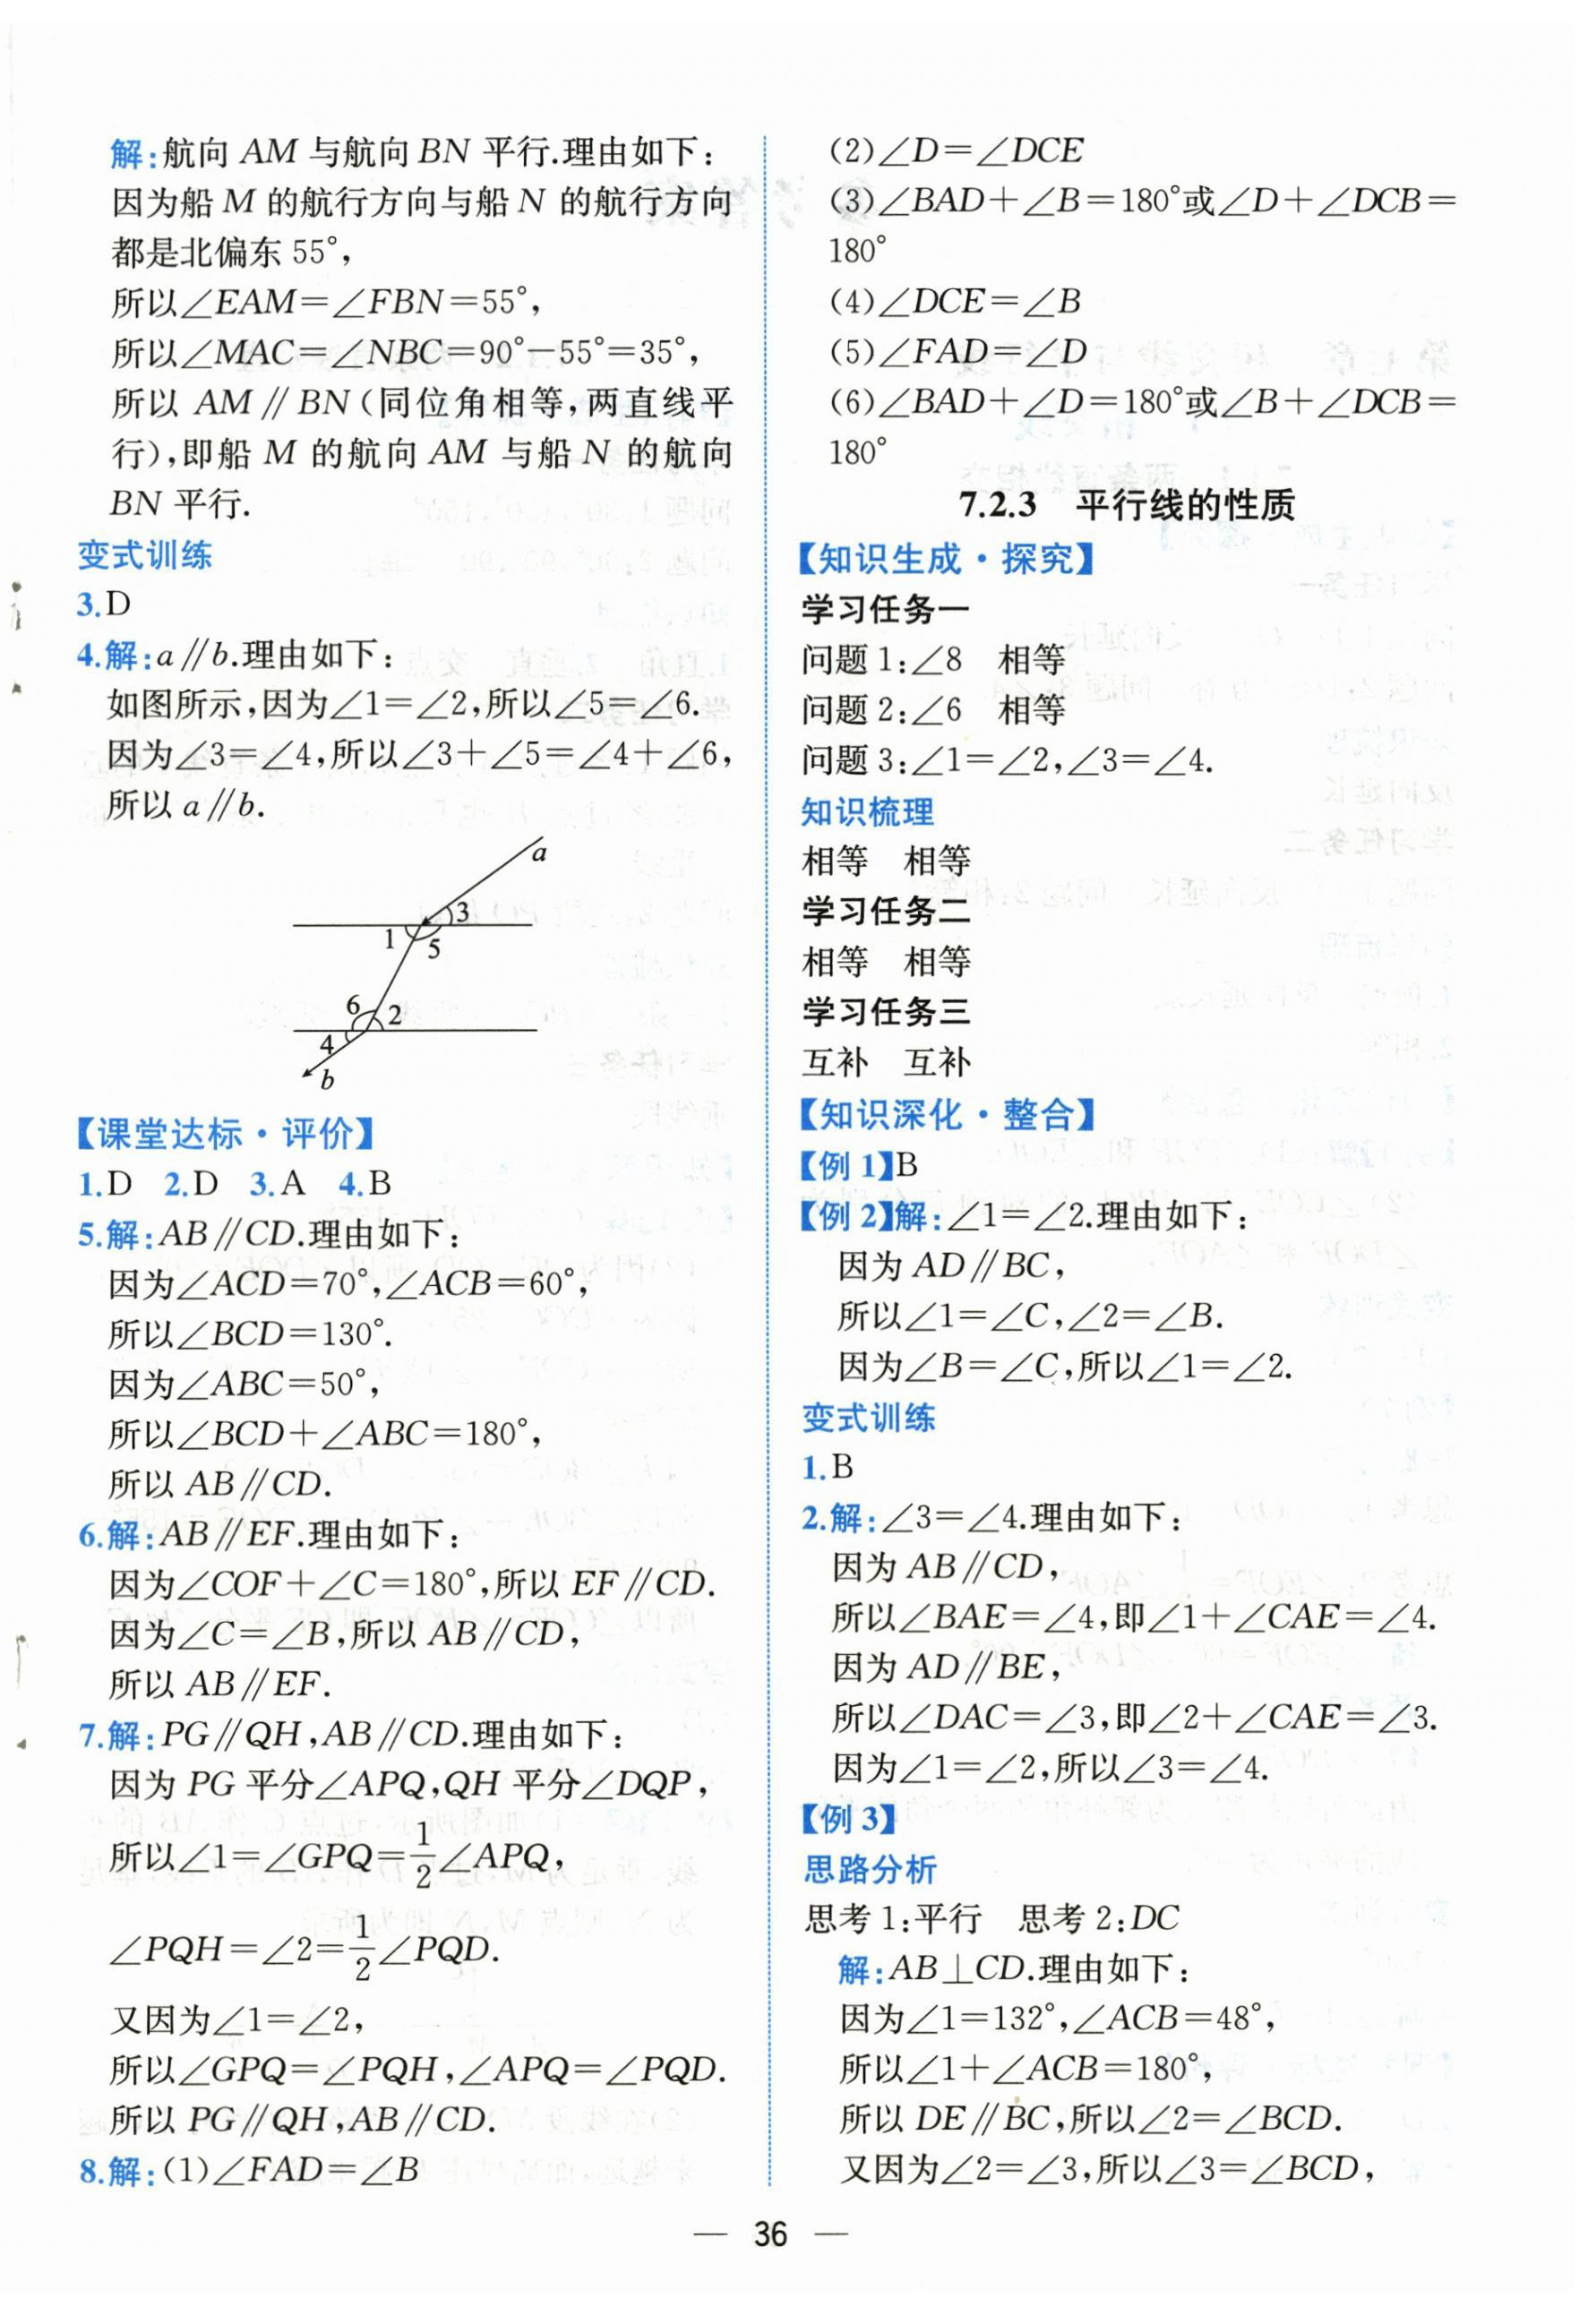 解:航向 AM 与航向 BN 平行.理由如下:
因为船 M 的航行方向与船 N 的航行方向
都是北偏东 55°,
所以∠EAM=∠FBN=55°,
所以∠MAC=∠NBC=90°-55°=35°,
所以 AM∥BN(同位角相等,两直线平
行),即船 M 的航向 AM 与船 N 的航向
BN 平行.
变式训练
3.D
4.解:a∥b.理由如下:
如图所示,因为∠1=∠2,所以∠5=∠6.
因为∠3=∠4,所以∠3+∠5=∠4+∠6,
所以 a∥b.
a
3
1 5
6 2
4
b
【课堂达标·评价】
1.D 2.D 3.A 4.B
5.解:AB∥CD.理由如下:
因为∠ACD=70°,∠ACB=60°,
所以∠BCD=130°.
因为∠ABC=50°,
所以∠BCD+∠ABC=180°,
所以 AB∥CD.
6.解:AB∥EF.理由如下:
因为∠COF+∠C=180°,所以 EF∥CD.
因为∠C=∠B,所以 AB∥CD,
所以 AB∥EF.
7.解:PG∥QH,AB∥CD.理由如下:
因为 PG 平分∠APQ,QH 平分∠DQP,
所以∠1=∠GPQ=1/2∠APQ,
∠PQH=∠2=1/2∠PQD.
又因为∠1=∠2,
所以∠GPQ=∠PQH,∠APQ=∠PQD.
所以 PG∥QH,AB∥CD.
8.解:(1)∠FAD=∠B
(2)∠D=∠DCE
(3)∠BAD+∠B=180°或∠D+∠DCB=
180°
(4)∠DCE=∠B
(5)∠FAD=∠D
(6)∠BAD+∠D=180°或∠B+∠DCB=
180°
7.2.3 平行线的性质
【知识生成·探究】
学习任务一
问题 1:∠8 相等
问题 2:∠6 相等
问题 3:∠1=∠2,∠3=∠4.
知识梳理
相等 相等
学习任务二
相等 相等
学习任务三
互补 互补
【知识深化·整合】
【例 1】B
【例 2】解:∠1=∠2.理由如下:
因为 AD∥BC,
所以∠1=∠C,∠2=∠B.
因为∠B=∠C,所以∠1=∠2.
变式训练
1.B
2.解:∠3=∠4.理由如下:
因为 AB∥CD,
所以∠BAE=∠4,即∠1+∠CAE=∠4.
因为 AD∥BE,
所以∠DAC=∠3,即∠2+∠CAE=∠3.
因为∠1=∠2,所以∠3=∠4.
【例 3】
思路分析
思考 1:平行 思考 2:DC
解:AB⊥CD.理由如下:
因为∠1=132°,∠ACB=48°,
所以∠1+∠ACB=180°,
所以 DE∥BC,所以∠2=∠BCD.
又因为∠2=∠3,所以∠3=∠BCD,
— 36 —